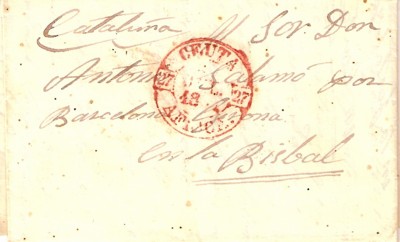 Cataluña Al Sor Don
CEUTA
Antonio Salamó por
18
Barcelona Gerona
AFRICA
en la Bisbal